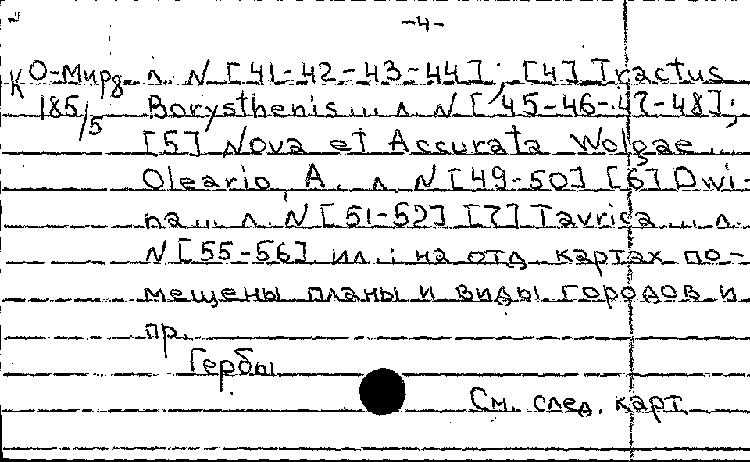 -4-
К О-Мирв л. N [41-42-43-44]; [4] Tractus
185/5 Borysthenis... л. N [45-46-47-48];
[5] Nova et Accurata Wolgae...
Oleario, A. л. N [49-50] [6] Dwi-
na... л. N [51-52] [7] Tavrica... л.
N [55-56] ил.: на отд. картах по-
мещены планы и виды городов и
пр.
Гербы
См. след. карт.